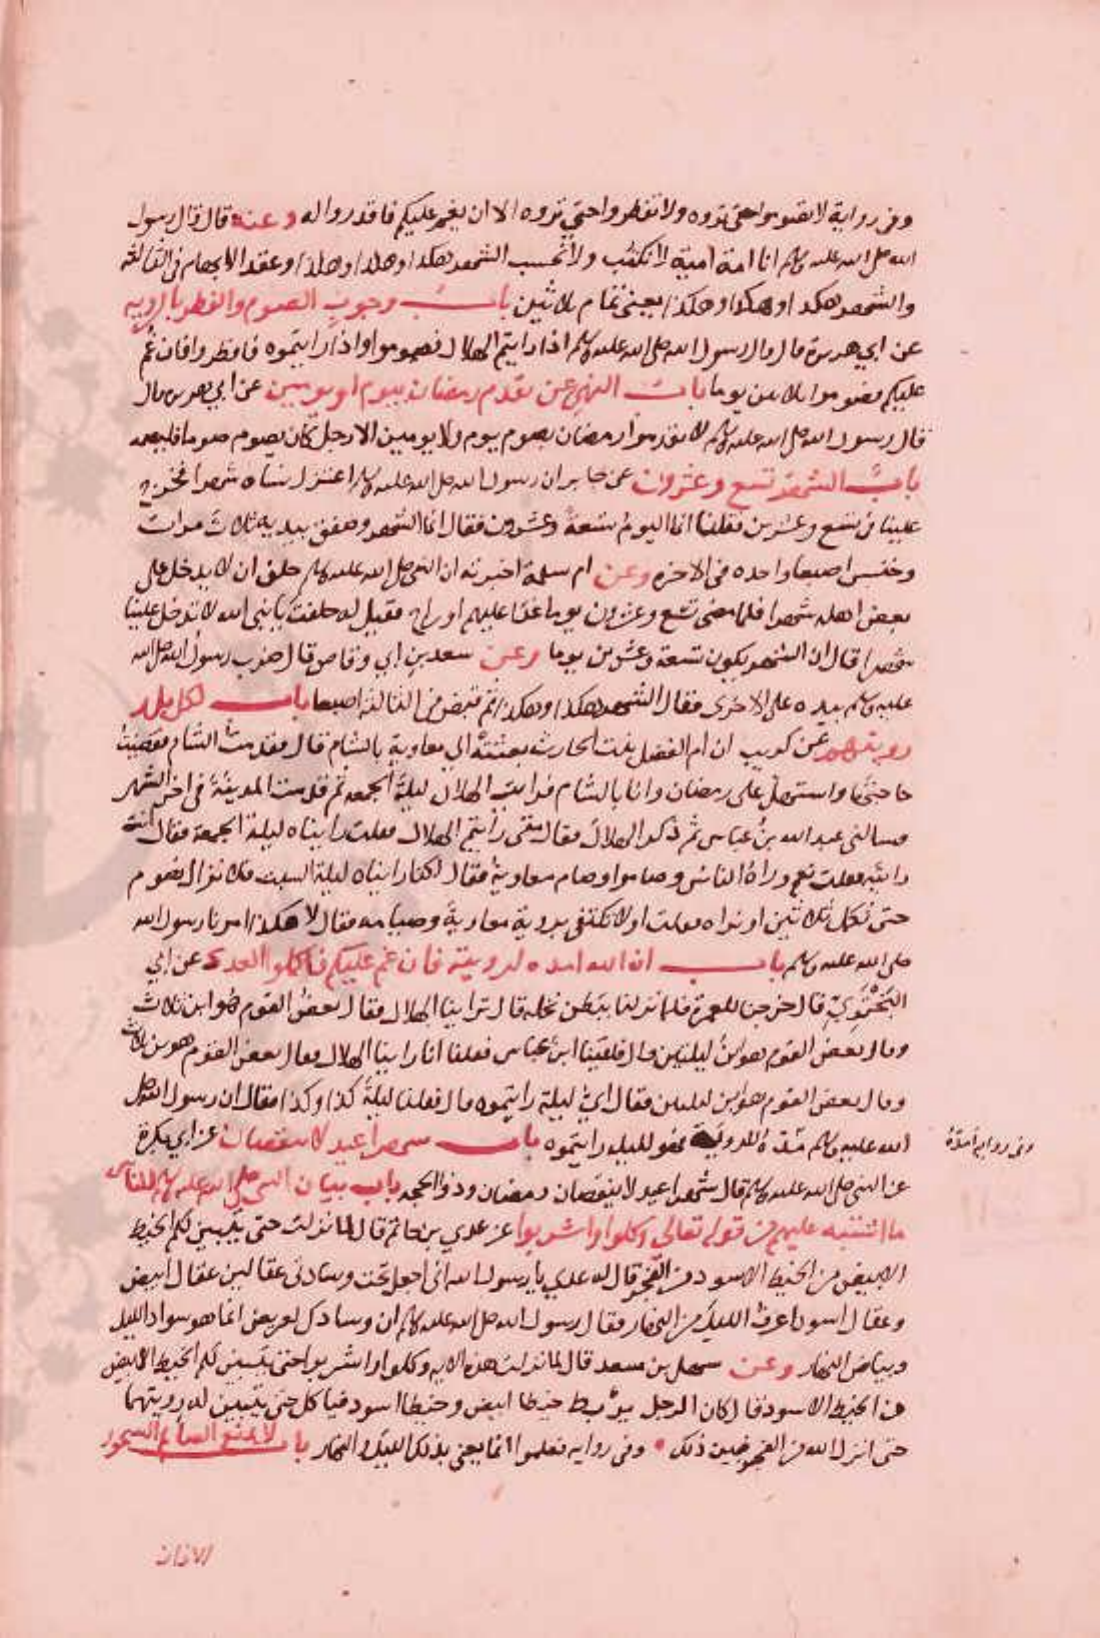 وفي رواية لا تصوموا حتى تروه ولا تفطروا حتى تروه الا ان يغم عليكم فاقدروا له وعنه قال قال رسول
الله صلى الله عليه وسلم انا امة امية لا نكتب ولا نحسب الشهر هكذا وهكذا وهكذا وعقد الابهام في الثالثة
والشهر هكذا وهكذا وهكذا يعني تمام ثلاثين باب وجوب الصوم والفطر بالروية
عن ابي هريرة قال قال رسول الله صلى الله عليه وسلم اذا رايتم الهلال فصوموا واذا رايتموه فافطروا فان غم
عليكم فصوموا ثلاثين يوما باب النهي عن تقدم رمضان بيوم او يومين عن ابي هريرة قال
قال رسول الله صلى الله عليه وسلم لا تقدموا رمضان بصوم يوم ولا يومين الا رجل كان يصوم صوما فليصمه
باب الشهر تسع وعشرون عن جابر ان رسول الله صلى الله عليه وسلم اعتزل نساه شهرا فخرج
علينا في تسع وعشرين فقلنا انا اليوم تسعة وعشرون فقال انا الشهر وصفق بيديه ثلاث مرات
وخنس اصبعا واحده في الاخره وعن ام سلمة اخبرته ان النبي صلى الله عليه وسلم حلف ان لا يدخل على
بعض اهله شهرا فلما مضى تسع وعشرون يوما غدا عليهم او راح فقيل له حلفت يا نبي الله لا تدخل علينا
شهرا قال ان الشهر يكون تسعة وعشرين يوما وعن سعد بن ابي وقاص قال ضرب رسول الله صلى الله
عليه وسلم بيده على الاخرى فقال الشهر هكذا وهكذا ثم قبض في الثالثة اصبعا باب لكل بلد
رويتهم عن كريب ان ام الفضل بنت الحارث بعثته الى معاوية بالشام قال فقدمت الشام فقضيت
حاجتها واستهل على رمضان وانا بالشام فرايت الهلال ليلة الجمعه ثم قدمت المدينة في اخر الشهر
فسالني عبد الله بن عباس ثم ذكر الهلال فقال متى رايتم الهلال فقلت رايناه ليلة الجمعة فقال انت
رايته فقلت نعم وراه الناس وصاموا وصام معاوية فقال لكنا رايناه ليلة السبت فلا نزال نصوم
حتى نكمل ثلاثين او نراه فقلت اولا تكتفي بروية معاوية وصيامه فقال لا هكذا امرنا رسول الله
صلى الله عليه وسلم باب ان الله امده لرويته فان غم عليكم فاكملوا العدة عن ابي
البختري قال خرجنا للعمرة فلما نزلنا ببطن نخله قال تراينا الهلال فقال بعض القوم هو ابن ثلاث
وقال بعض القوم هو ابن ليلتين قال فلقينا ابن عباس فقلنا انا راينا الهلال فقال بعض القوم هو بن ثلاث
وقال بعض القوم هو ابن ليلتين فقال اي ليلة رايتموه قال فقلنا ليلة كذا وكذا فقال ان رسول الله صلى
الله عليه وسلم مده للروية فهو لليله رايتموه باب شهرا عيد لا ينقصان عن ابي بكرة
وفي رواية امده
عن النبي صلى الله عليه وسلم قال شهرا عيد لا ينقصان رمضان وذو الحجه باب بيان النبي صلى الله عليه وسلم للناس
ما اشتبه عليهم من قوله تعالى وكلوا واشربوا عن عدي بن حاتم قال لما نزلت حتى يتبين لكم الخيط
الابيض من الخيط الاسود من الفجر قال له عدي يا رسول الله اني اجعل تحت وسادتي عقالين عقال ابيض
وعقال اسود اعرف الليل من النهار فقال رسول الله صلى الله عليه وسلم ان وسادك لعريض انما هو سواد الليل
وبياض النهار وعن سهل بن سعد قال لما نزلت هذه الايه وكلوا واشربوا حتى يتبين لكم الخيط الابيض
من الخيط الاسود قال كان الرجل يربط خيطا ابيض وخيطا اسود فياكل حتى يتبين له رويتهما
حتى انزل الله من الفجر فبين ذلك وفي رواية فعلموا انما يعني بذلك الليل والنهار باب لا يمنع الصائم السحور
الاذان